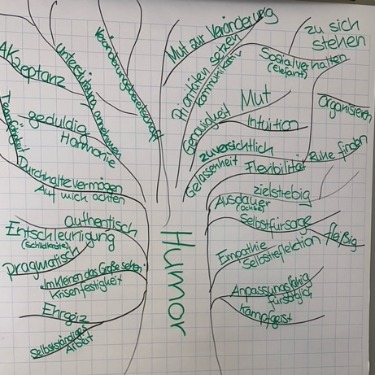 Akzeptanz
Unterstützung annehmen
Veränderungsbereitschaft
Teamfähigkeit
geduldig
Harmonie
Durchhaltevermögen
Auf mich achten
authentisch
Entschleunigung
(Schildkröte)
Pragmatisch
Im Kleinen das Große sehen
Krisenfestigkeit
Ehrgeiz
Selbstständiges
Arbeit
Humor
Mut zur Veränderung
Prioritäten setzen
Kommunikativ
zu sich
stehen
Sozialverhalten
(Elefant)
Organisieren
Genauigkeit
Mut
Intuition
zuversichtlich
Gelassenheit
Flexibilität
Ruhe finden
zielstrebig
Ausdauer
Selbstfürsorge
fleißig
Empathie
Selbstreflektion
Anpassungsfähig
fürsorglich
Kampfgeist